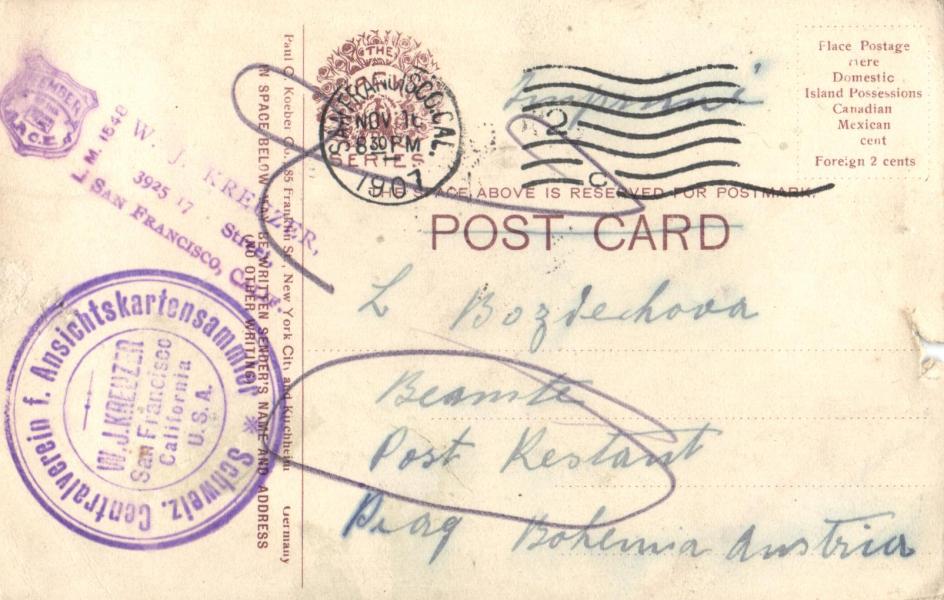 MEMBER
A.C.E.
M. 1540
W. J. KREUZER,
3925 17 Street
SAN FRANCISCO, CAL.
Schweiz. Centralverein f. Ansichtskartensammler *
W. J. KREUZER
San Francisco
California
U.S.A.
Paul C. Koeber Co., 85 Franklin St., New York City and Kirchheim Germany
IN SPACE BELOW MAY BE WRITTEN SENDER'S NAME AND ADDRESS
(NO OTHER WRITING)
THE
SERIES
SAN FRANCISCO, CAL.
NOV 16
8 30 PM
1907
2
C
Place Postage
Here
Domestic
Island Possessions
Canadian
Mexican
cent
Foreign 2 cents
SPACE ABOVE IS RESERVED FOR POSTMARK.
POST CARD
L Bozdechova
Beamte
Post Restant
Prag Bohemia Austria